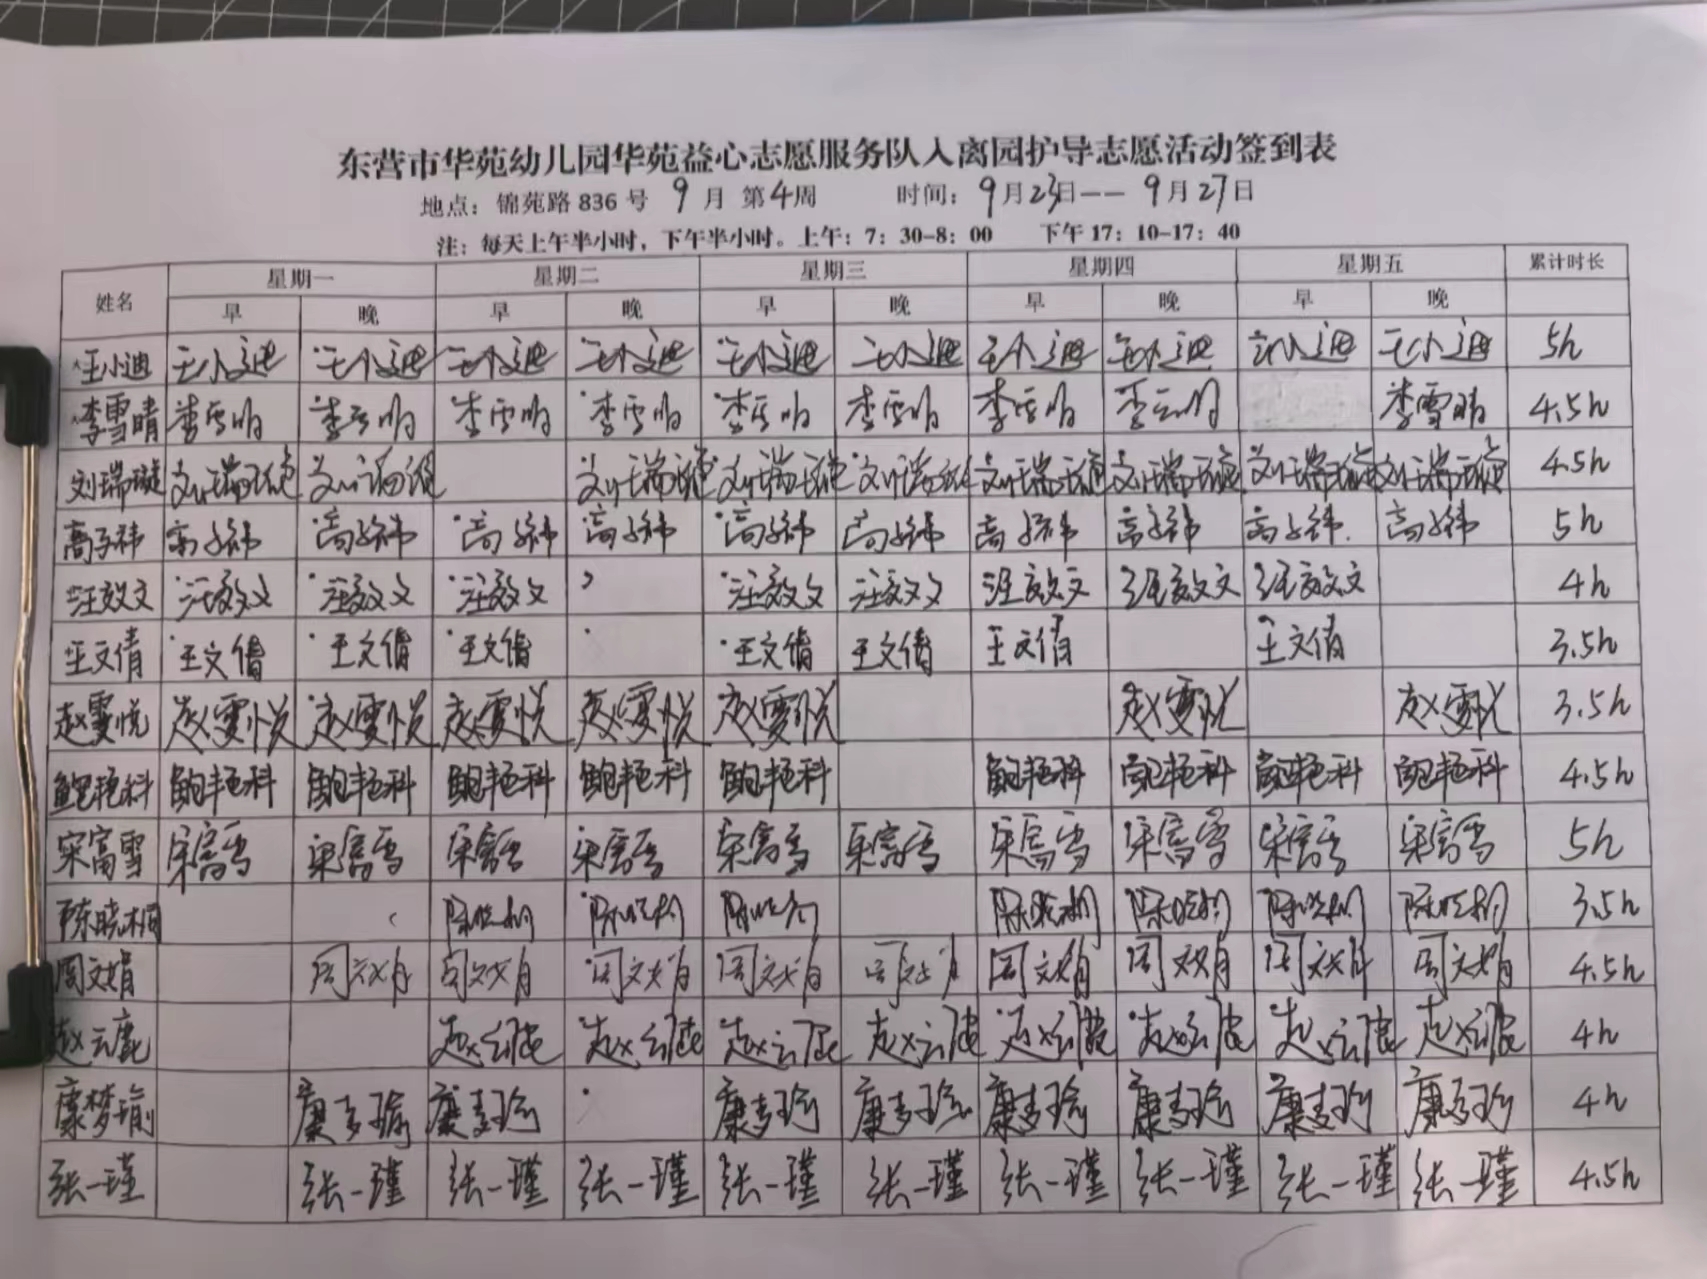 东营市华苑幼儿园华苑益心志愿服务队入离园护导志愿活动签到表
地点：锦苑路 836 号 9 月 第4周 时间：9月23日—— 9月27日
注：每天上午半小时，下午半小时。上午：7：30-8：00 下午 17：10-17：40
姓名 星期一 星期二 星期三 星期四 星期五 累计时长
早 晚 早 晚 早 晚 早 晚 早 晚
王小迪 王小迪 王小迪 王小迪 王小迪 王小迪 王小迪 王小迪 王小迪 王小迪 王小迪 5h
李雪晴 李雪晴 李雪晴 李雪晴 李雪晴 李雪晴 李雪晴 李雪晴 李雪晴 李雪晴 4.5h
刘瑞璇 刘瑞璇 刘瑞璇 刘瑞璇 刘瑞璇 刘瑞璇 刘瑞璇 刘瑞璇 刘瑞璇 刘瑞璇 4.5h
高子祎 高子祎 高子祎 高子祎 高子祎 高子祎 高子祎 高子祎 高子祎 高子祎 高子祎 5h
汪效文 汪效文 汪效文 汪效文 汪效文 汪效文 汪效文 汪效文 汪效文 4h
王文倩 王文倩 王文倩 王文倩 王文倩 王文倩 王文倩 王文倩 3.5h
赵雯悦 赵雯悦 赵雯悦 赵雯悦 赵雯悦 赵雯悦 赵雯悦 赵雯悦 3.5h
鲍艳科 鲍艳科 鲍艳科 鲍艳科 鲍艳科 鲍艳科 鲍艳科 鲍艳科 鲍艳科 鲍艳科 4.5h
宋富雪 宋富雪 宋富雪 宋富雪 宋富雪 宋富雪 宋富雪 宋富雪 宋富雪 宋富雪 宋富雪 5h
陈晓桐 陈晓桐 陈晓桐 陈晓桐 陈晓桐 陈晓桐 陈晓桐 陈晓桐 3.5h
周文娟 周文娟 周文娟 周文娟 周文娟 周文娟 周文娟 周文娟 周文娟 周文娟 4.5h
赵云鹿 赵云鹿 赵云鹿 赵云鹿 赵云鹿 赵云鹿 赵云鹿 赵云鹿 赵云鹿 4h
康梦瑜 康梦瑜 康梦瑜 康梦瑜 康梦瑜 康梦瑜 康梦瑜 康梦瑜 康梦瑜 4h
张一瑾 张一瑾 张一瑾 张一瑾 张一瑾 张一瑾 张一瑾 张一瑾 张一瑾 张一瑾 4.5h